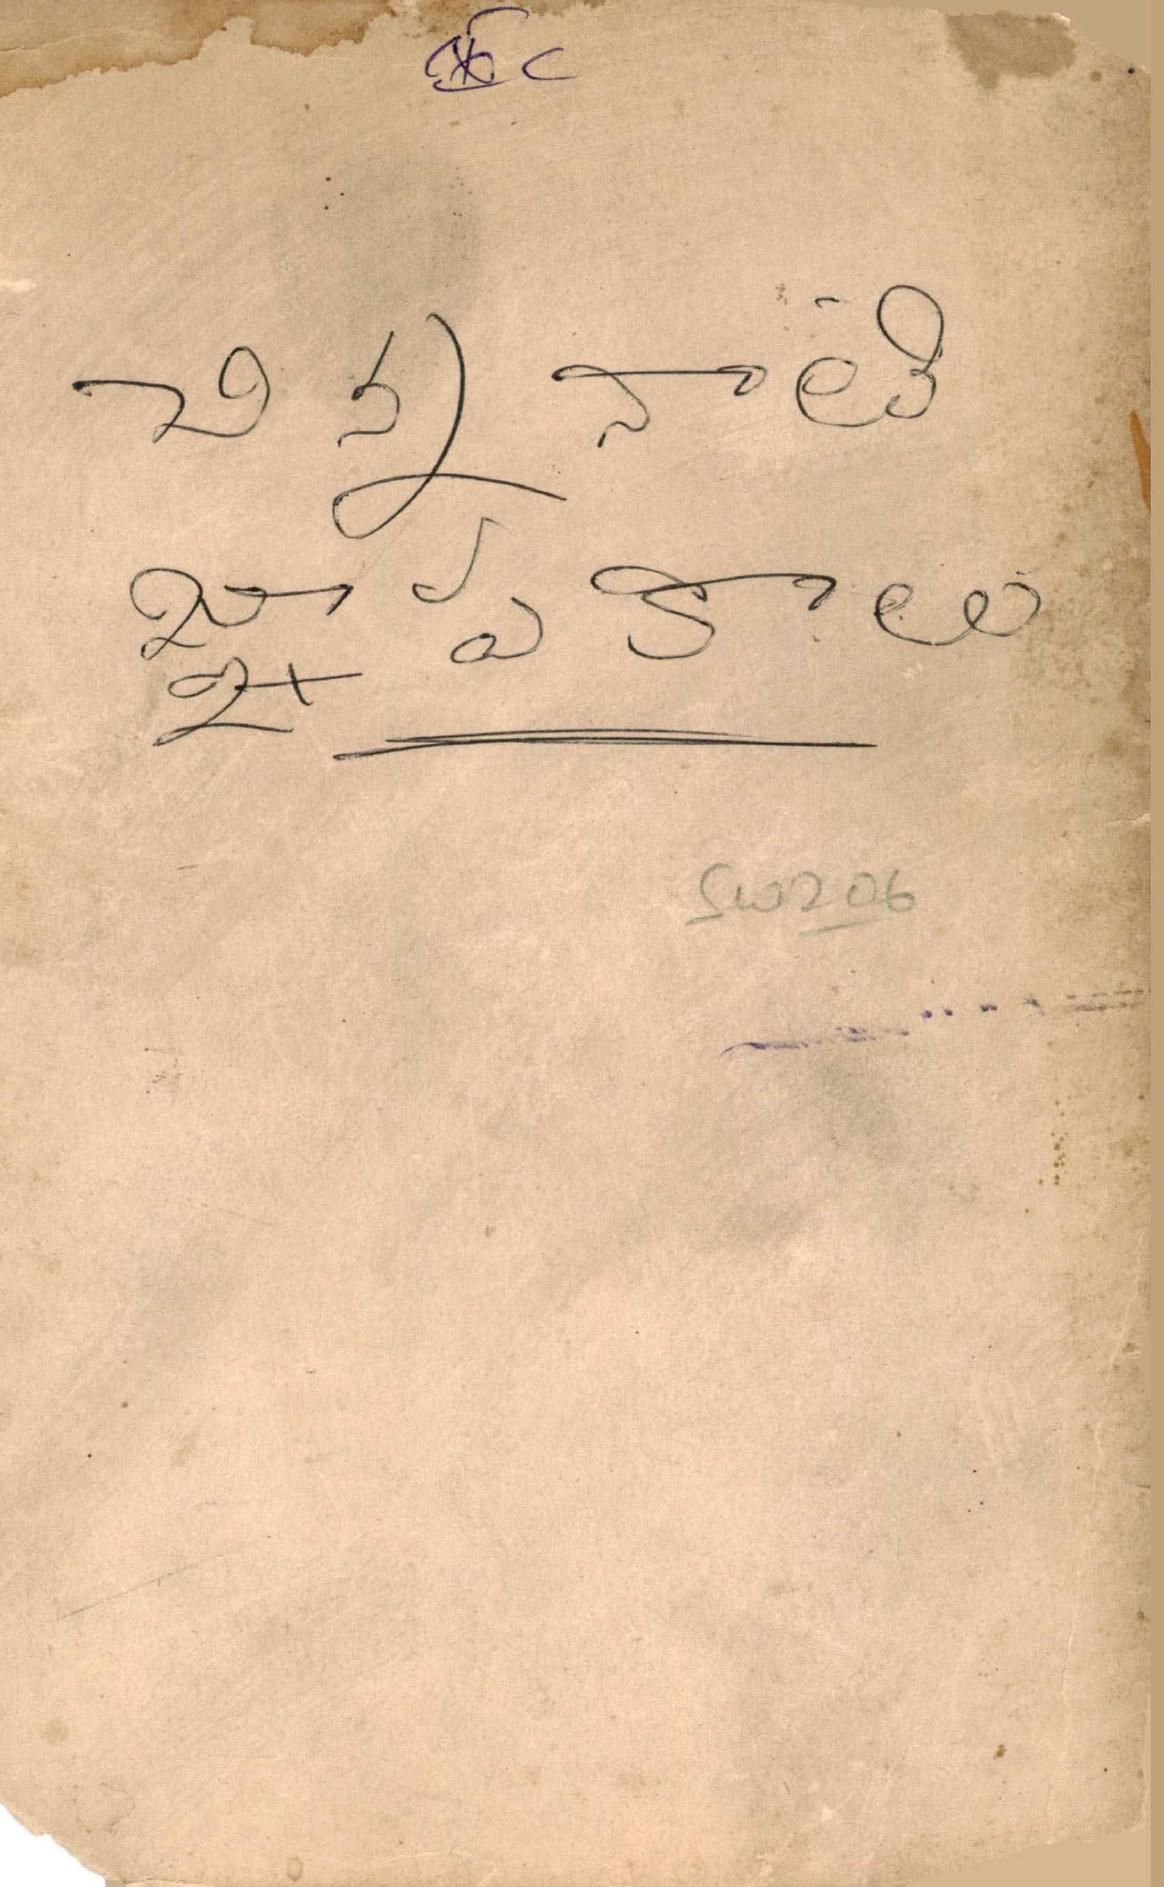 చిన్ననాటి
జ్ఞాపకాలు
SW206